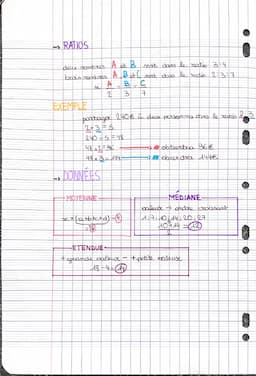 → RATIOS
deux nombres A et B sont dans le ratio 3:4
trois nombres A, B et C sont dans le ratio 2:3:7
A = B = C
2 3 7
EXEMPLE
partager 240€ à deux personnes dans le ratio 2:3
2+3=5
240÷5=48
48×2=96 → obtiendra 96€
48×3=144 → obtiendra 144€
→ DONNÉES
MOYENNE
MÉDIANE
valeurs → ordre croissant
1:7:10:14:20:27
10+14 = 12
2
ETENDUE
+ grande valeur - + petite valeur
18-4=14